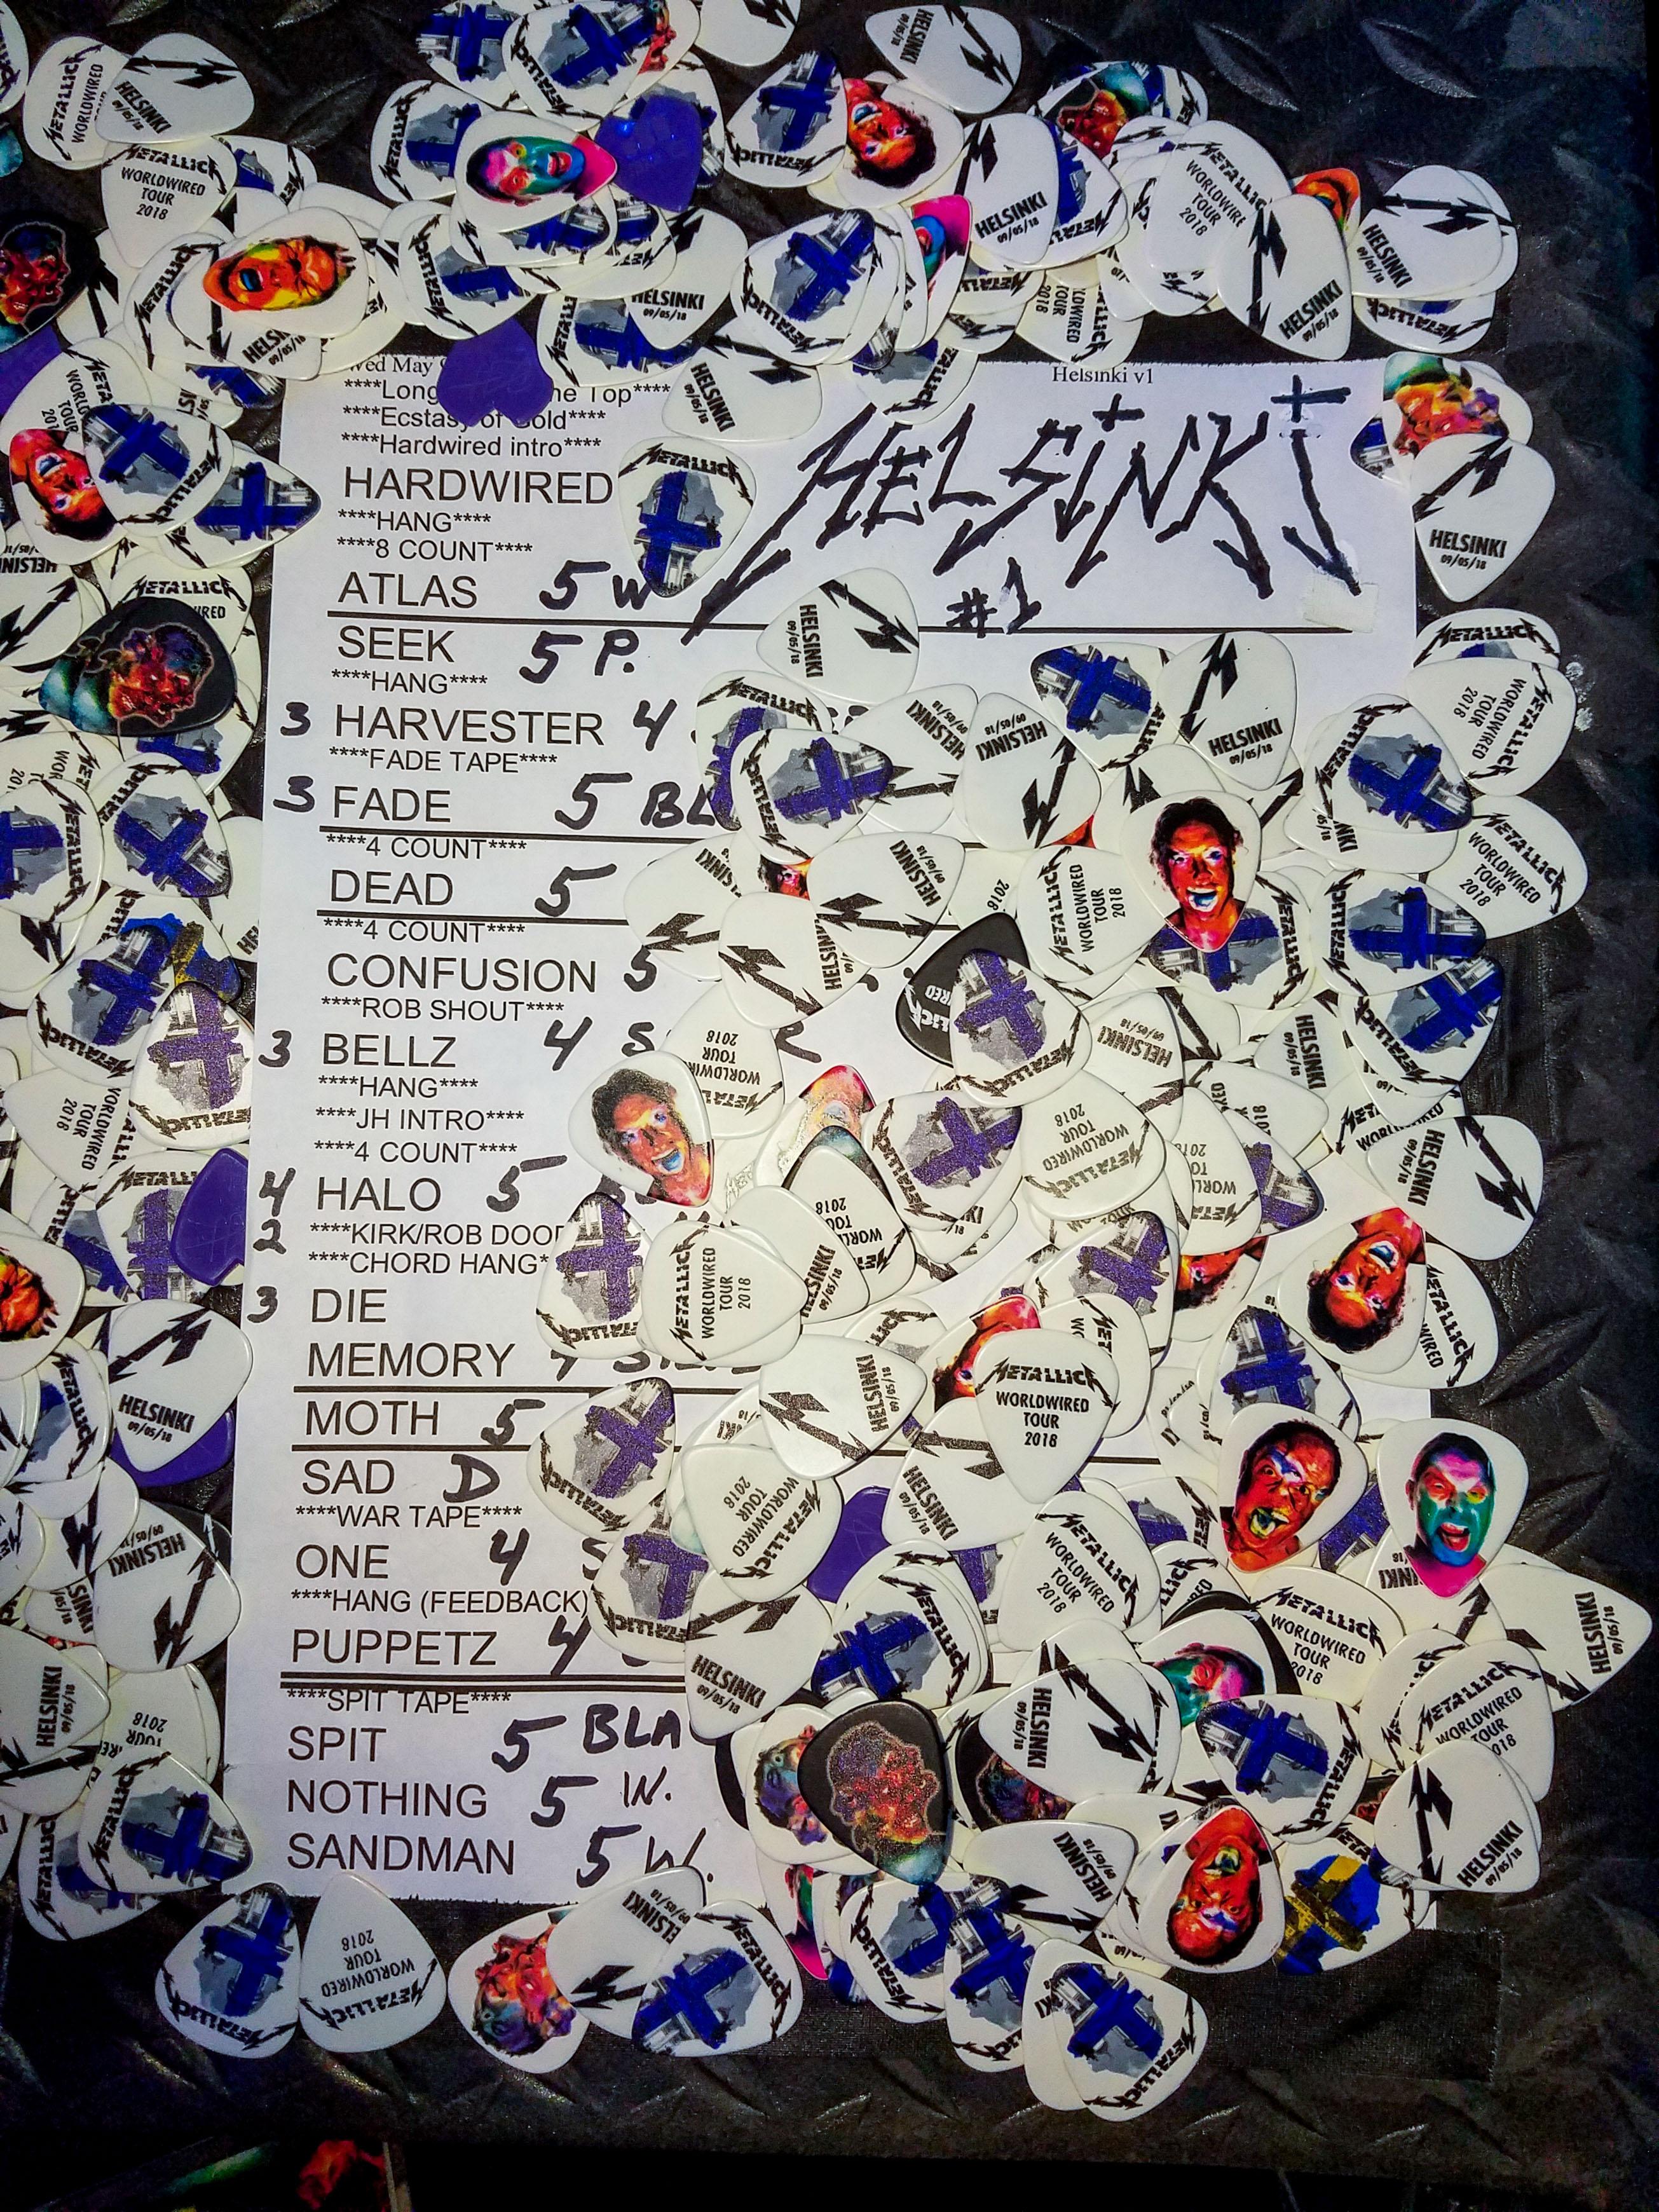 Wed May
Helsinki v1
****Long
he Top****
****Ecstasy of Gold****
****Hardwired intro****
HELSiNKi
#1
HARDWIRED
****HANG****
****8 COUNT****
ATLAS 5 W
SEEK 5 P.
****HANG****
3 HARVESTER 4
****FADE TAPE****
3 FADE 5 BL
****4 COUNT****
DEAD 5
****4 COUNT****
CONFUSION 5
****ROB SHOUT****
3 BELLZ 4 S
****HANG****
****JH INTRO****
****4 COUNT****
4 HALO 5
2 ****KIRK/ROB DOOD
****CHORD HANG*
3 DIE
MEMORY 4
MOTH 5
SAD D
****WAR TAPE****
ONE 4 S
****HANG (FEEDBACK)
PUPPETZ 4
****SPIT TAPE****
SPIT 5 BLA
NOTHING 5 W.
SANDMAN 5 W.
METALLICA
WORLDWIRED
TOUR
2018
HELSINKI
09/05/18